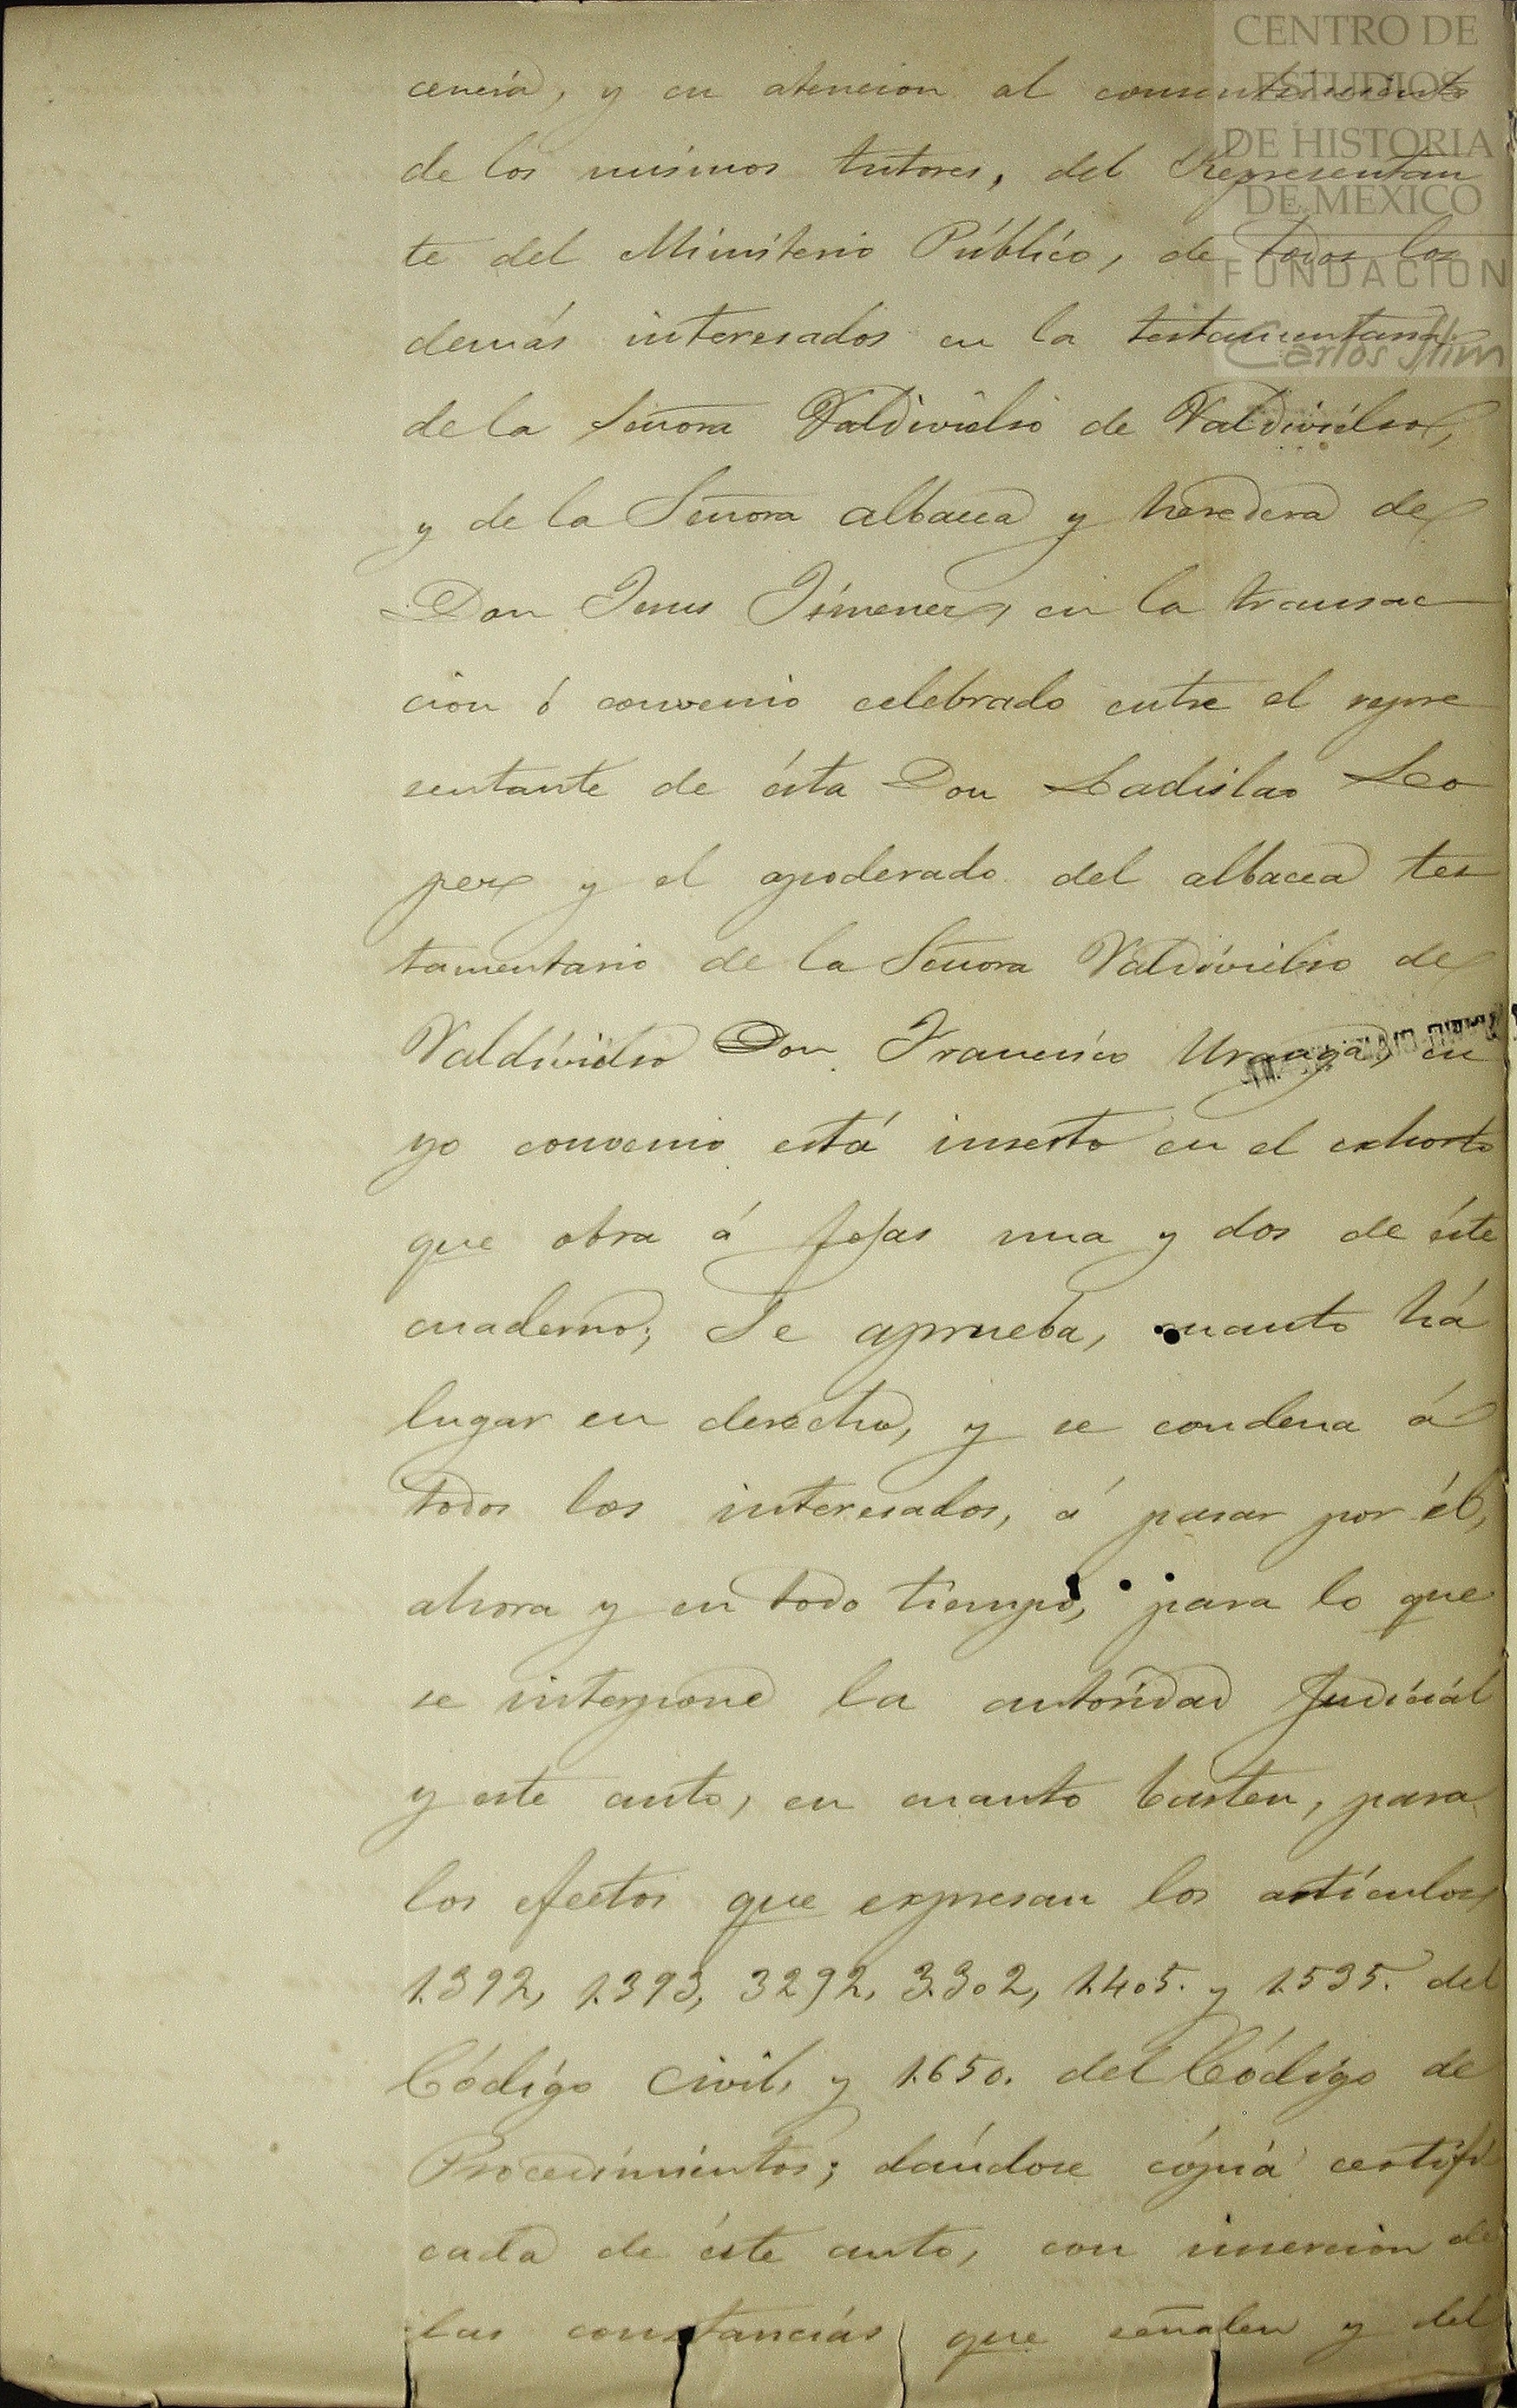 CENTRO DE
ESTUDIOS
DE HISTORIA
DE MEXICO
FUNDACION
Carlos Slim
cencia, y en atencion al consentimiento
de los mismos tutores, del Representan
te del Ministerio Público, de todos los
demás interesados en la testamentaria
de la Señora Valdivielso de Valdivielso,
y de la Señora albacea y heredera de
Don Jesus Jimenez, en la transac
cion ó convenio celebrado entre el repre
sentante de ésta Don Ladislao Lo
pez y el apoderado del albacea tes
tamentario de la Señora Valdivielso de
Valdivielso Don Francisco Uranga, cu
yo convenio está inserto en el exhorto
que obra á fojas una y dos de éste
cuaderno; Se aprueba, cuanto há
lugar en derecho, y se condena á
todos los interesados, á pasar por él,
ahora y en todo tiempo, para lo que
se interpone la autoridad Judicial
y este auto, en cuanto basten, para
los efectos que expresan los artículos
1.392, 1.393, 3292, 3.302, 1.405. y 1.535. del
Código Civil, y 1.650. del Código de
Procedimientos; dándose cópia certifi
cada de éste auto, con insercion de
las constancias que señalen y del